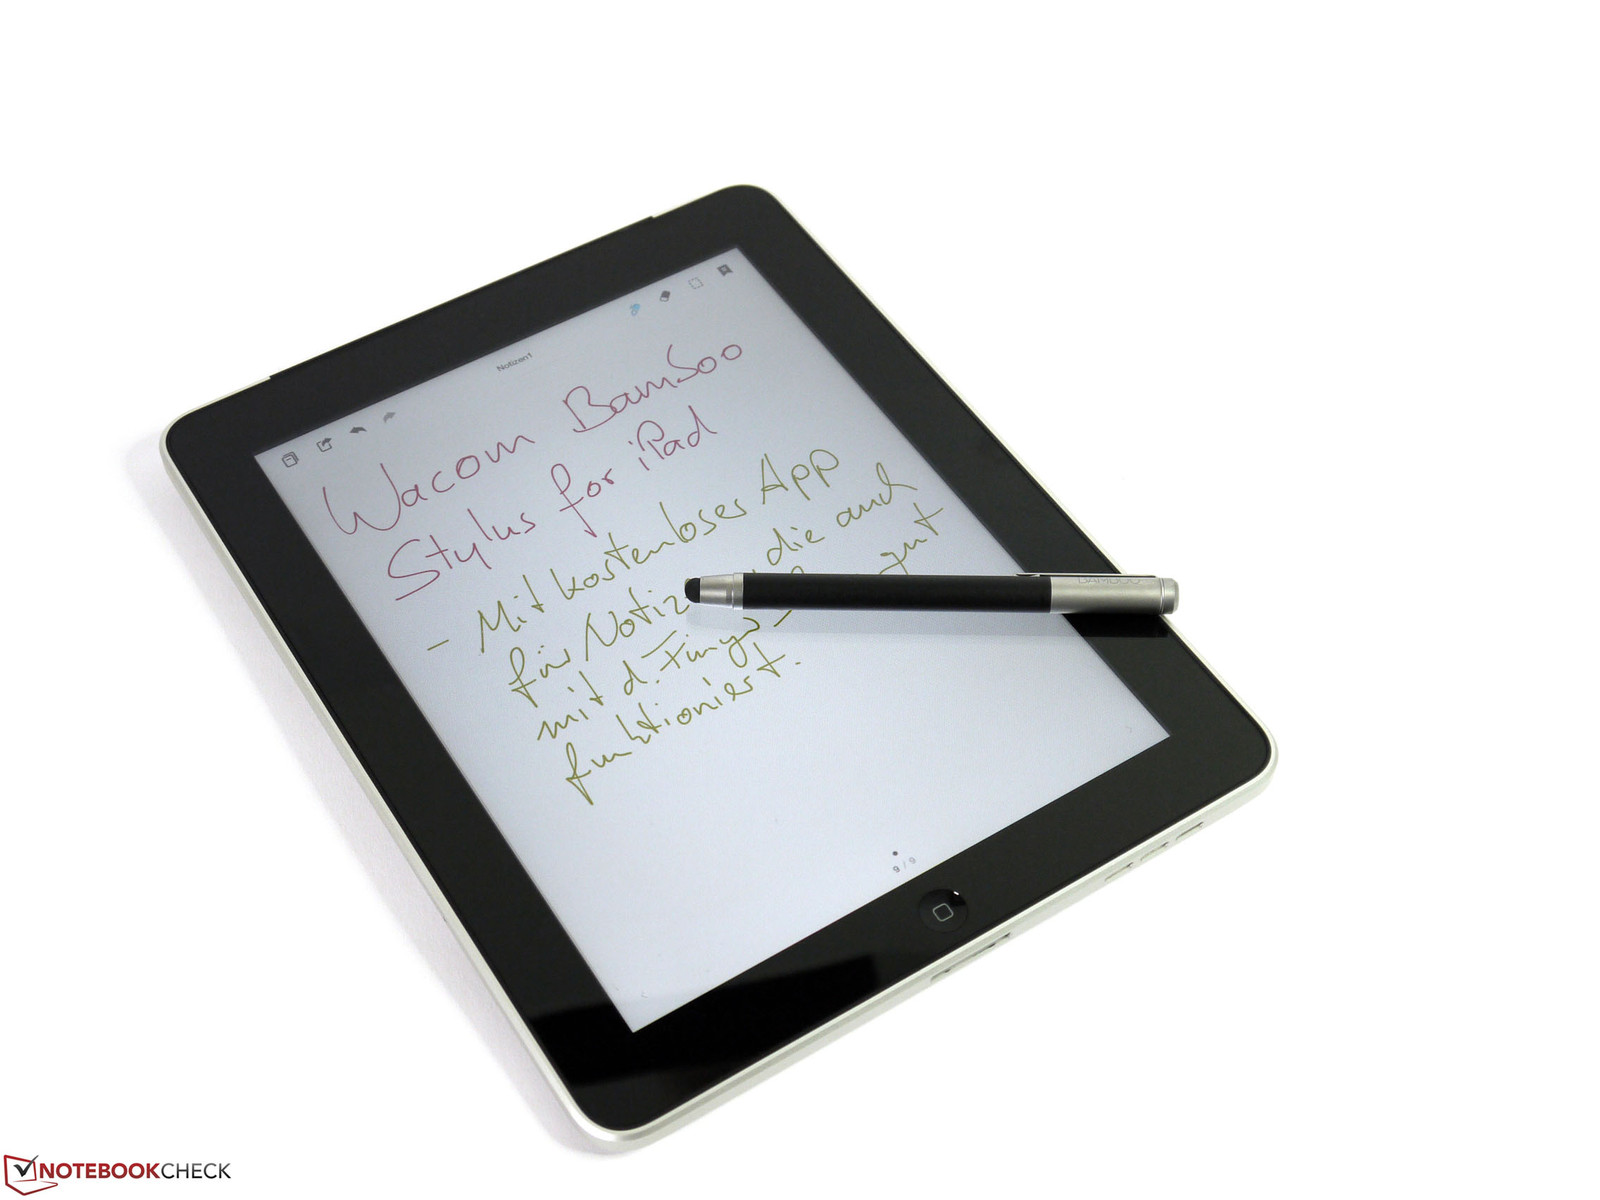 Notizen1
Wacom Bamboo
Stylus for iPad
- Mit kostenloses App
für Notiz die auch
mit d. Finger gut
funktioniert.
BAMBOO
9/9
NOTEBOOKCHECK